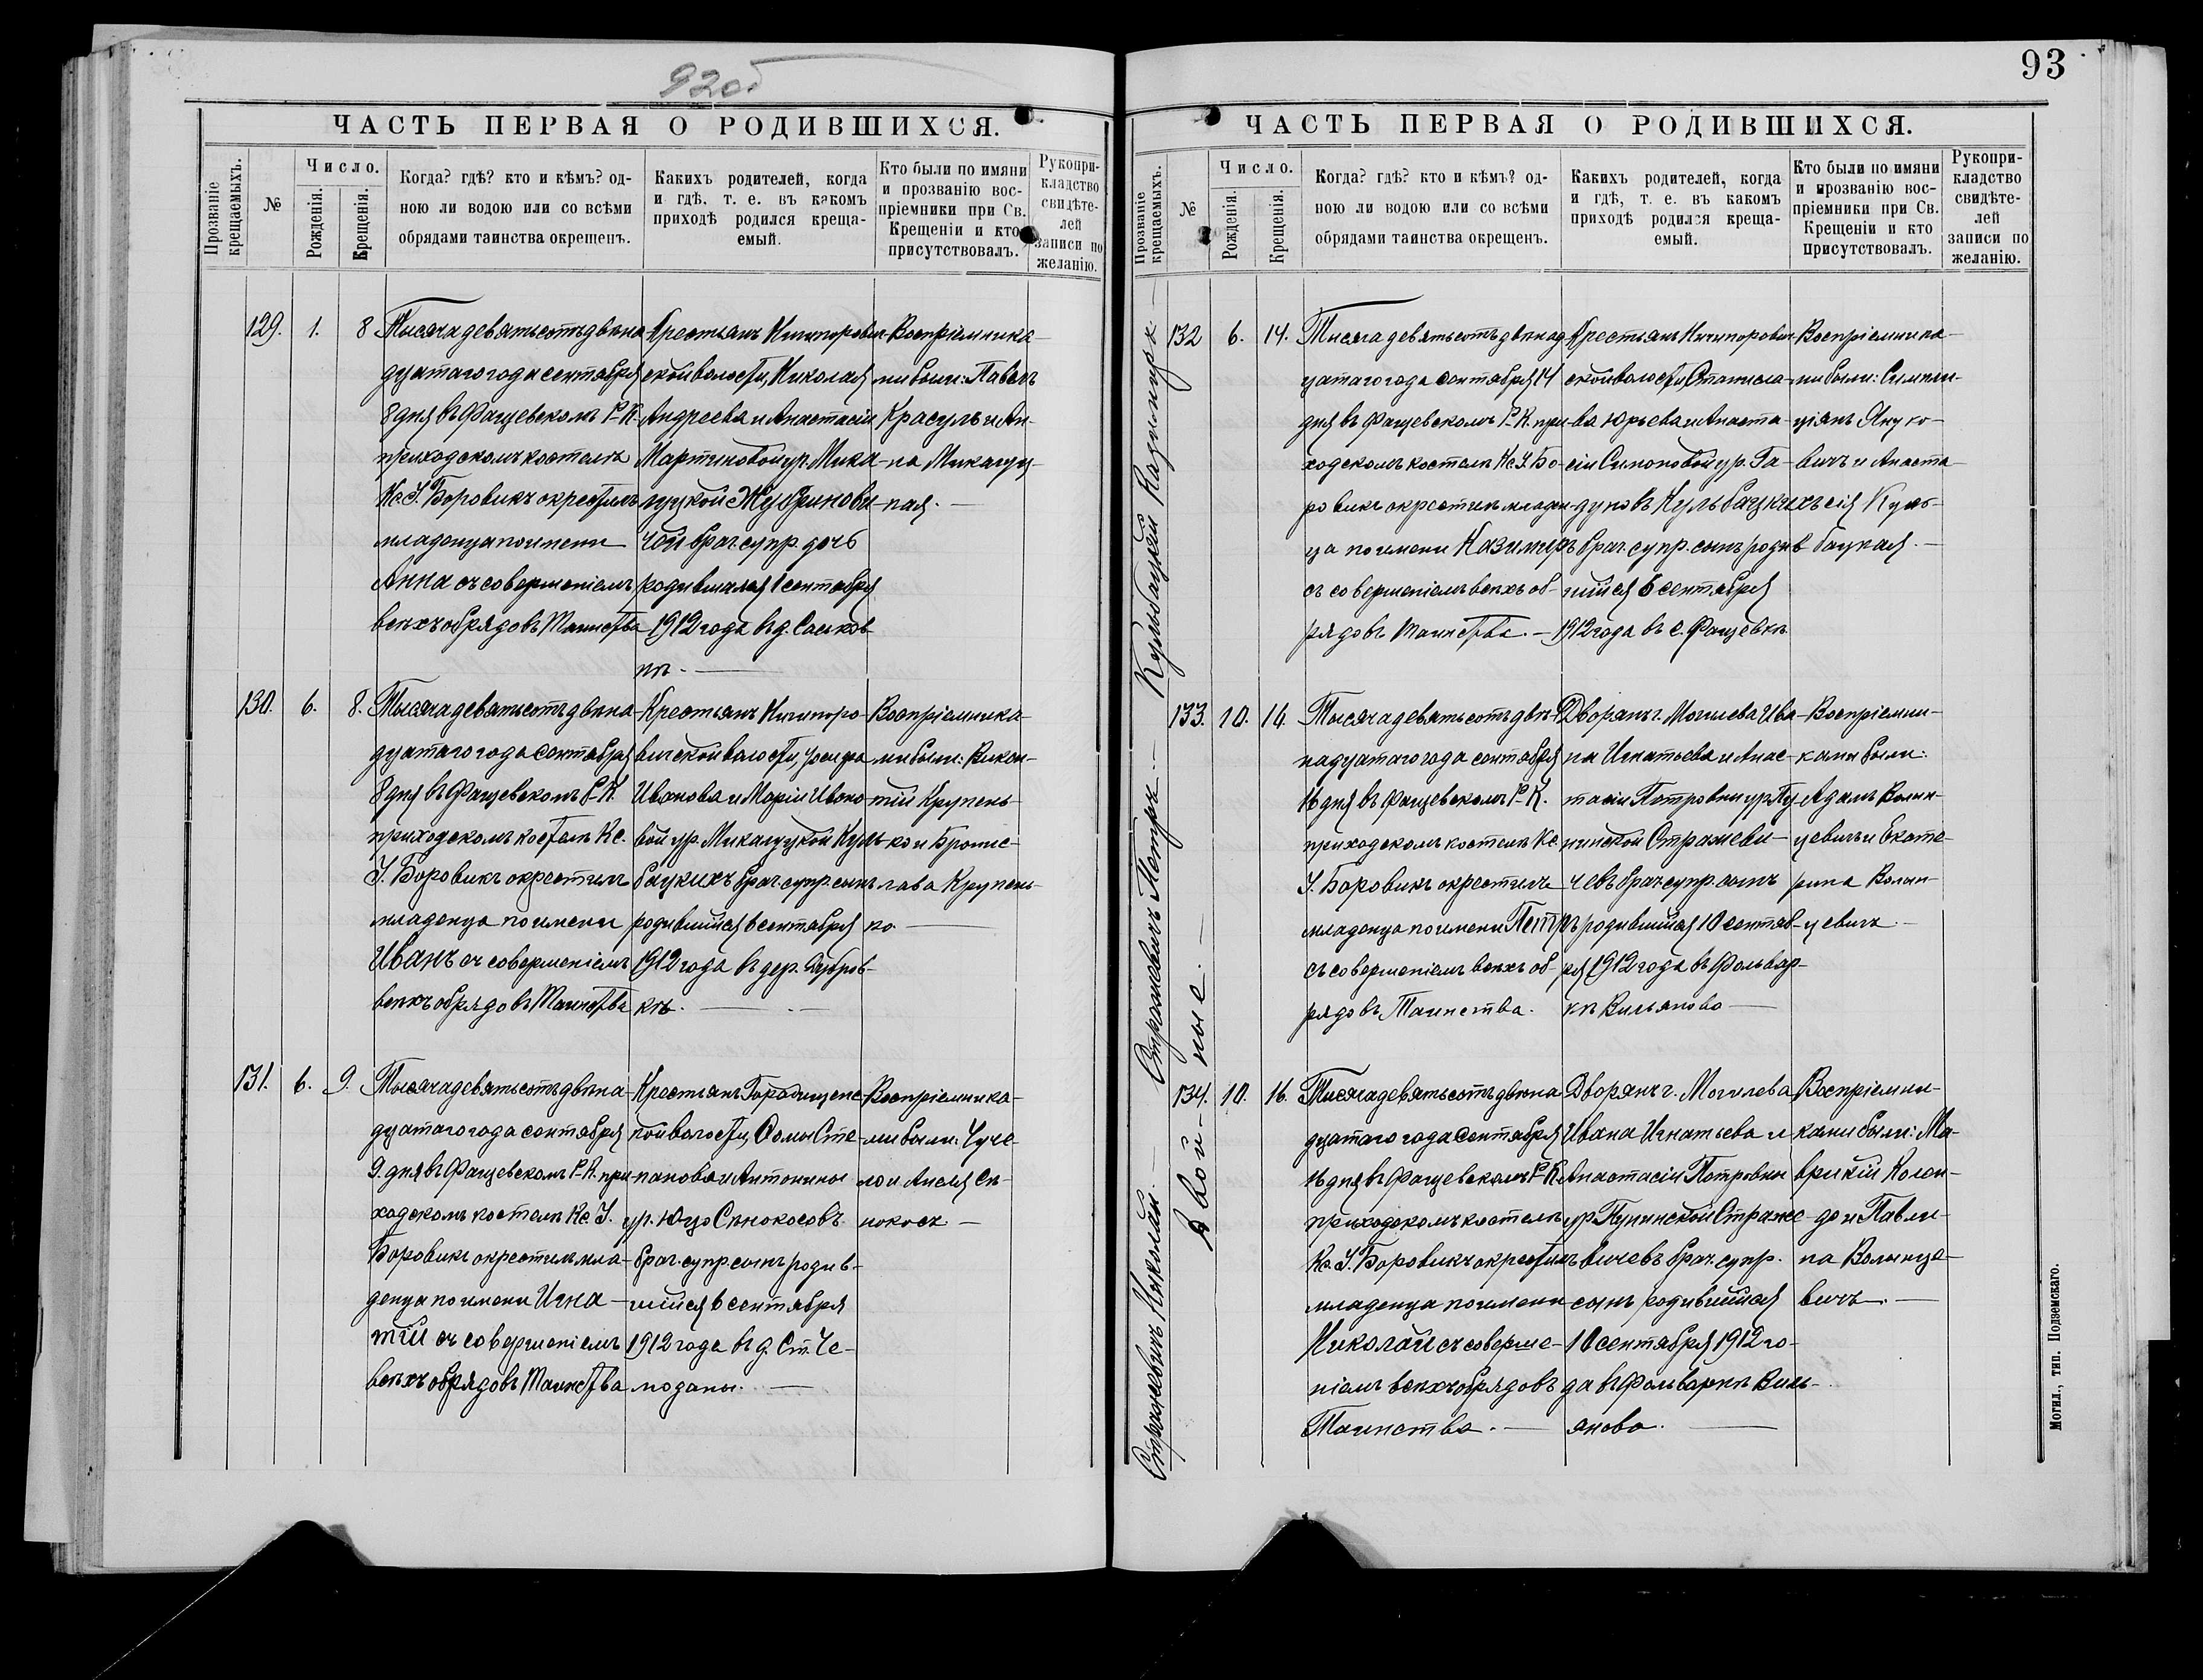 92об
ЧАСТЬ ПЕРВАЯ О РОДИВШИХСЯ.
Прозваніе крещаемыхъ.
№
Число.
Рожденія.
Крещенія.
Когда? гдѣ? кто и кѣмъ? од-
ною ли водою или со всѣми
обрядами таинства окрещенъ.
Какихъ родителей, когда
и гдѣ, т. е. въ какомъ
приходѣ родился креща-
емый.
Кто были по имяни
и прозванію вос-
пріемники при Св.
Крещеніи и кто
присутствовалъ.
Рукопри-
кладство
свидѣте-
лей
записи по
желанію.
129. 1. 8
Тысяча девятьсотъ двѣна-
дцатаго года сентября
8 дня въ Фащевскомъ Р-К.
приходскомъ костелѣ
Кс. І. Боровикъ окрестилъ
младенца по имени
Анна съ совершеніемъ
всѣхъ обрядовъ Таинства
Крестьянъ Ничипорови-
ской волости, Николая
Андреева и Анастасіи
Мартиновой ур. Мика-
луцкой Жубринови-
чей брач. супр. дочь
родившаяся 1 сентября
1912 года въ д. Саськов-
кѣ.
Воспріемника-
ми были: Павелъ
Красуль и Ан-
на Микалуц-
кая.
130. 6. 8.
Тысяча девятьсотъ двѣна-
дцатаго года сентября
8 дня въ Фащевскомъ Р-К.
приходскомъ костелѣ Кс.
І. Боровикъ окрестилъ
младенца по имени
Иванъ съ совершеніемъ
всѣхъ обрядовъ Таинства
Крестьянъ Ничипоро-
вичской волости, Іосифа
Иванова и Маріи Ивано-
вой ур. Микалуцкой Куль-
бацкихъ брач. супр. сынъ
родившійся 6 сентября
1912 года въ дер. Дубров-
кѣ.
Воспріемника-
ми были: Викен-
тій Крупень-
ко и Бронис-
лава Крупень-
ко.
131. 6. 9.
Тысяча девятьсотъ двѣна-
дцатаго года сентября
9. дня въ Фащевскомъ Р-К. при-
ходскомъ костелѣ Кс. І.
Боровикъ окрестилъ мла-
денца по имени Игна-
тій съ совершеніемъ
всѣхъ обрядовъ Таинства
Крестьянъ Городищенс-
кой волости, Ѳомы Сте-
панова и Антонины
ур. Юцо Сѣнокосовъ
брач. супр. сынъ родив-
шійся 6 сентября
1912 года въ д. Ст. Че-
моданы.
Воспріемника-
ми были:
и Анеля Сѣ-
нокосъ
93
ЧАСТЬ ПЕРВАЯ О РОДИВШИХСЯ.
Прозваніе крещаемыхъ.
№
Число.
Рожденія.
Крещенія.
Когда? гдѣ? кто и кѣмъ? од-
ною ли водою или со всѣми
обрядами таинства окрещенъ.
Какихъ родителей, когда
и гдѣ, т. е. въ какомъ
приходѣ родился креща-
емый.
Кто были по имяни
и прозванію вос-
пріемники при Св.
Крещеніи и кто
присутствовалъ.
Рукопри-
кладство
свидѣте-
лей
записи по
желанію.
Кульбацкій Казимиръ
132 6. 14.
Тысяча девятьсотъ двѣнад-
цатаго года сентября 14
дня въ Фащевскомъ Р-К. при-
ходскомъ костелѣ Кс. І. Бо-
ровикъ окрестилъ младен-
ца по имени Казимиръ
съ совершеніемъ всѣхъ об-
рядовъ Таинства.
Крестьянъ Ничипорович-
ской волости, Станисла-
ва Юрьева и Анаста-
сіи Симоновой ур. Га-
дуковъ Кульбацкихъ
брач. супр. сынъ родив-
шійся 6 сентября
1912 года въ с. Фащевкѣ
Воспріемника-
ми были: Симпли-
ціянъ Януко-
вичъ и Анаста-
сія Куль-
бацкая.
Стражевичъ Петръ
133. 10. 16.
Тысяча девятьсотъ двѣ-
надцатаго года сентября
16 дня въ Фащевскомъ Р-К.
приходскомъ костелѣ Кс.
І. Боровикъ окрестилъ
младенца по имени Петръ
съ совершеніемъ всѣхъ об-
рядовъ Таинства.
Дворянъ г. Могилева Ива-
на Игнатьева и Анас-
тасіи Петровны ур. Пу-
нинской Стражеви-
чевъ брач. супр. сынъ
родившійся 10 сентяб-
ря 1912 года въ Фольвар-
кѣ Вильяново
Воспріемни-
ками были:
Адамъ Волын-
цевичъ и Екате-
рина Волын-
цевичъ.
Двой-
ные.
Стражевичъ Николай.
134. 10. 16.
Тысяча девятьсотъ двѣна-
дцатаго года сентября
16 дня въ Фащевскомъ Р-К
приходскомъ костелѣ
Кс. І. Боровикъ окрестилъ
младенца по имени
Николай съ соверше-
ніемъ всѣхъ обрядовъ
Таинства.
Дворянъ г. Могилева
Ивана Игнатьева и
Анастасіи Петровны
ур. Пунинской Страже-
вичевъ брач. супр.
сынъ родившійся
10 сентября 1912 го-
да въ Фольваркѣ Виль-
яново.
Воспріемни-
ками были: Ма-
врикій Колен-
до и Павли-
на Волынце-
вичъ.
Могил., тип. Подземскаго.